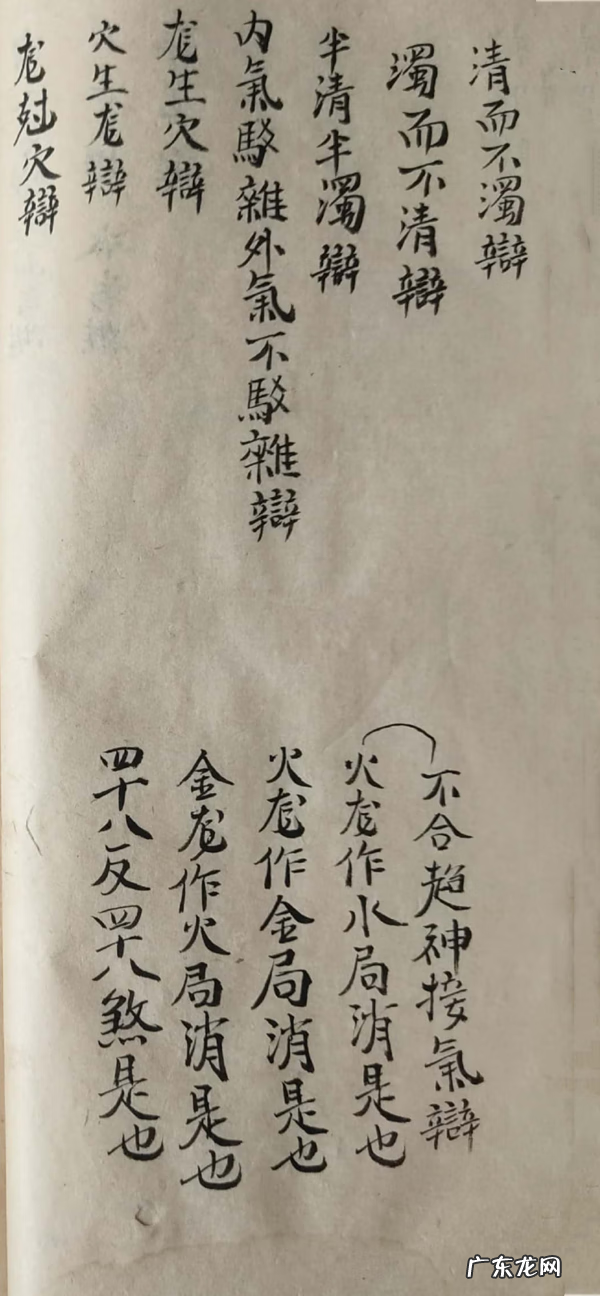 清而不濁辯
濁而不清辯
半清半濁辯
内氣駁雜外氣不駁雜辯
龙生穴辯
穴生龙辯
龙尅穴辯
不合超神接氣辯
火龙作水局消是也
火龙作金局消是也
金龙作火局消是也
四十八反四十八煞是也
广东龙网